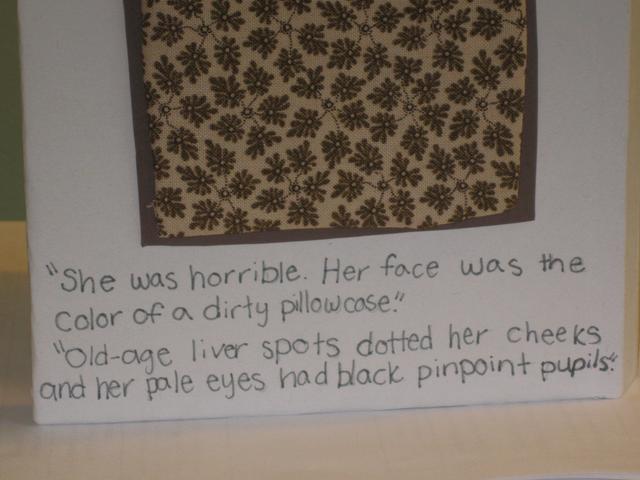 "She was horrible. Her face was the
color of a dirty pillowcase."
"Old-age liver spots dotted her cheeks
and her pale eyes had black pinpoint pupils."